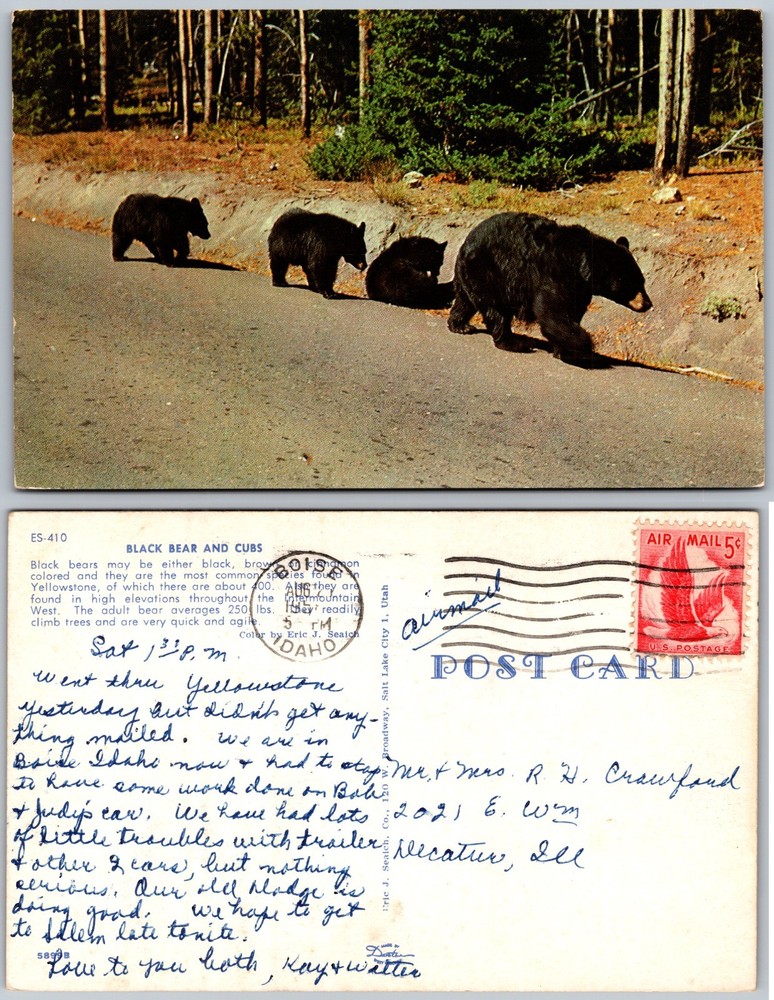 ES-410
BLACK BEAR AND CUBS
Black bears may be either black, brown or cinnamon
colored and they are the most common species found in
Yellowstone, of which there are about 400. Also they are
found in high elevations throughout the Intermountain
West. The adult bear averages 250 lbs. They readily
climb trees and are very quick and agile.
Color by Eric J. Seaich
BOISE
AUG 27
5 PM
IDAHO
AIR MAIL 5¢
U.S. POSTAGE
airmail
POST CARD
Sat 1 33 P.M.
Went thru Yellowstone
yesterday but didn't get any-
thing mailed. We are in
Boise Idaho now & had to stop
to have some work done on Bob
& Judy's car. We have had lots
of little troubles with trailer
& other 2 cars, but nothing
serious. Our old Dodge is
doing good. We hope to get
to Salem late tonite.
Love to you both, Kay & Walter
58998
Eric J. Seaich, Co., 120 W. Broadway, Salt Lake City 1, Utah
Mr. & Mrs. R. H. Crawford
2021 E. Wm
Decatur, Ill
Dexter